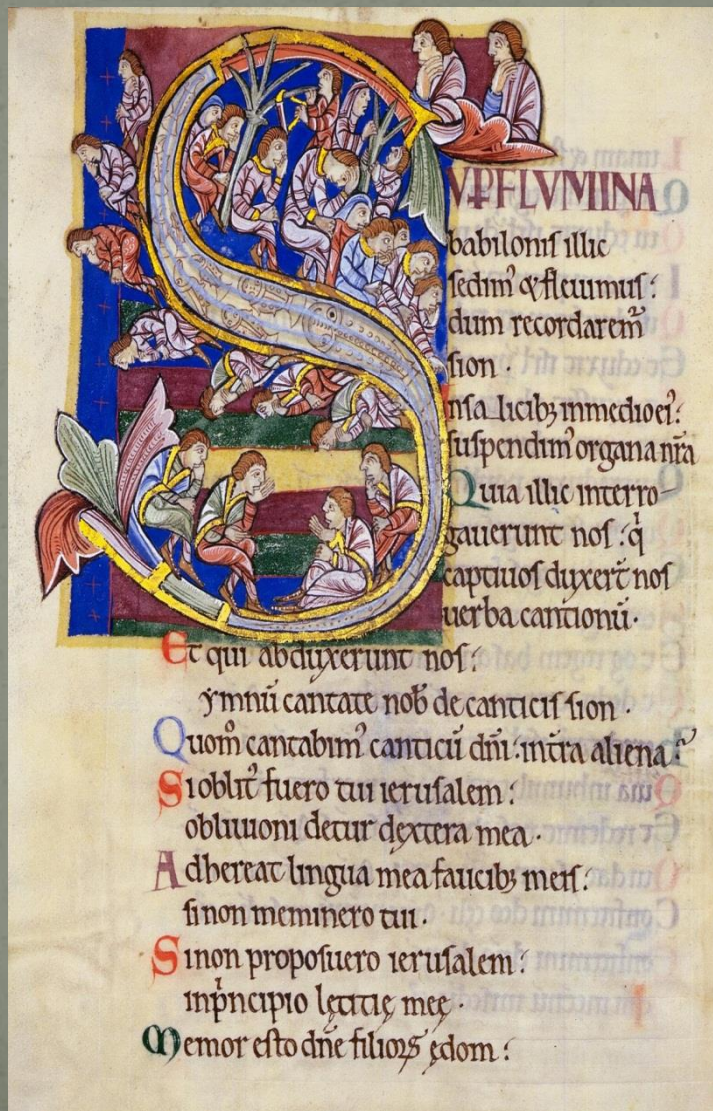 SUP FLUMINA
babilonis illic
sedim᷒ & fleuimus:
dum recordarem̃
sion.
Insalicib; inmedio ei᷒:
suspendim᷒ organa nr̃a
Quia illic interro-
gauerunt nos: q̇
captiuos duxert̃ nos
uerba cantionũ.
Et qui abduxerunt nos:
ymnũ cantate nob̃ de canticis sion.
Quom̊ cantabim᷒ canticũ dñi: intra aliena?
Si oblit᷒ fuero tui ierusalem:
obliuioni detur dextera mea.
Adhereat lingua mea faucib; meis:
si non meminero tui.
Si non proposuero ierusalem:
inpͥncipio lętitię meę.
Memor esto dñe filioꝝ ędom: